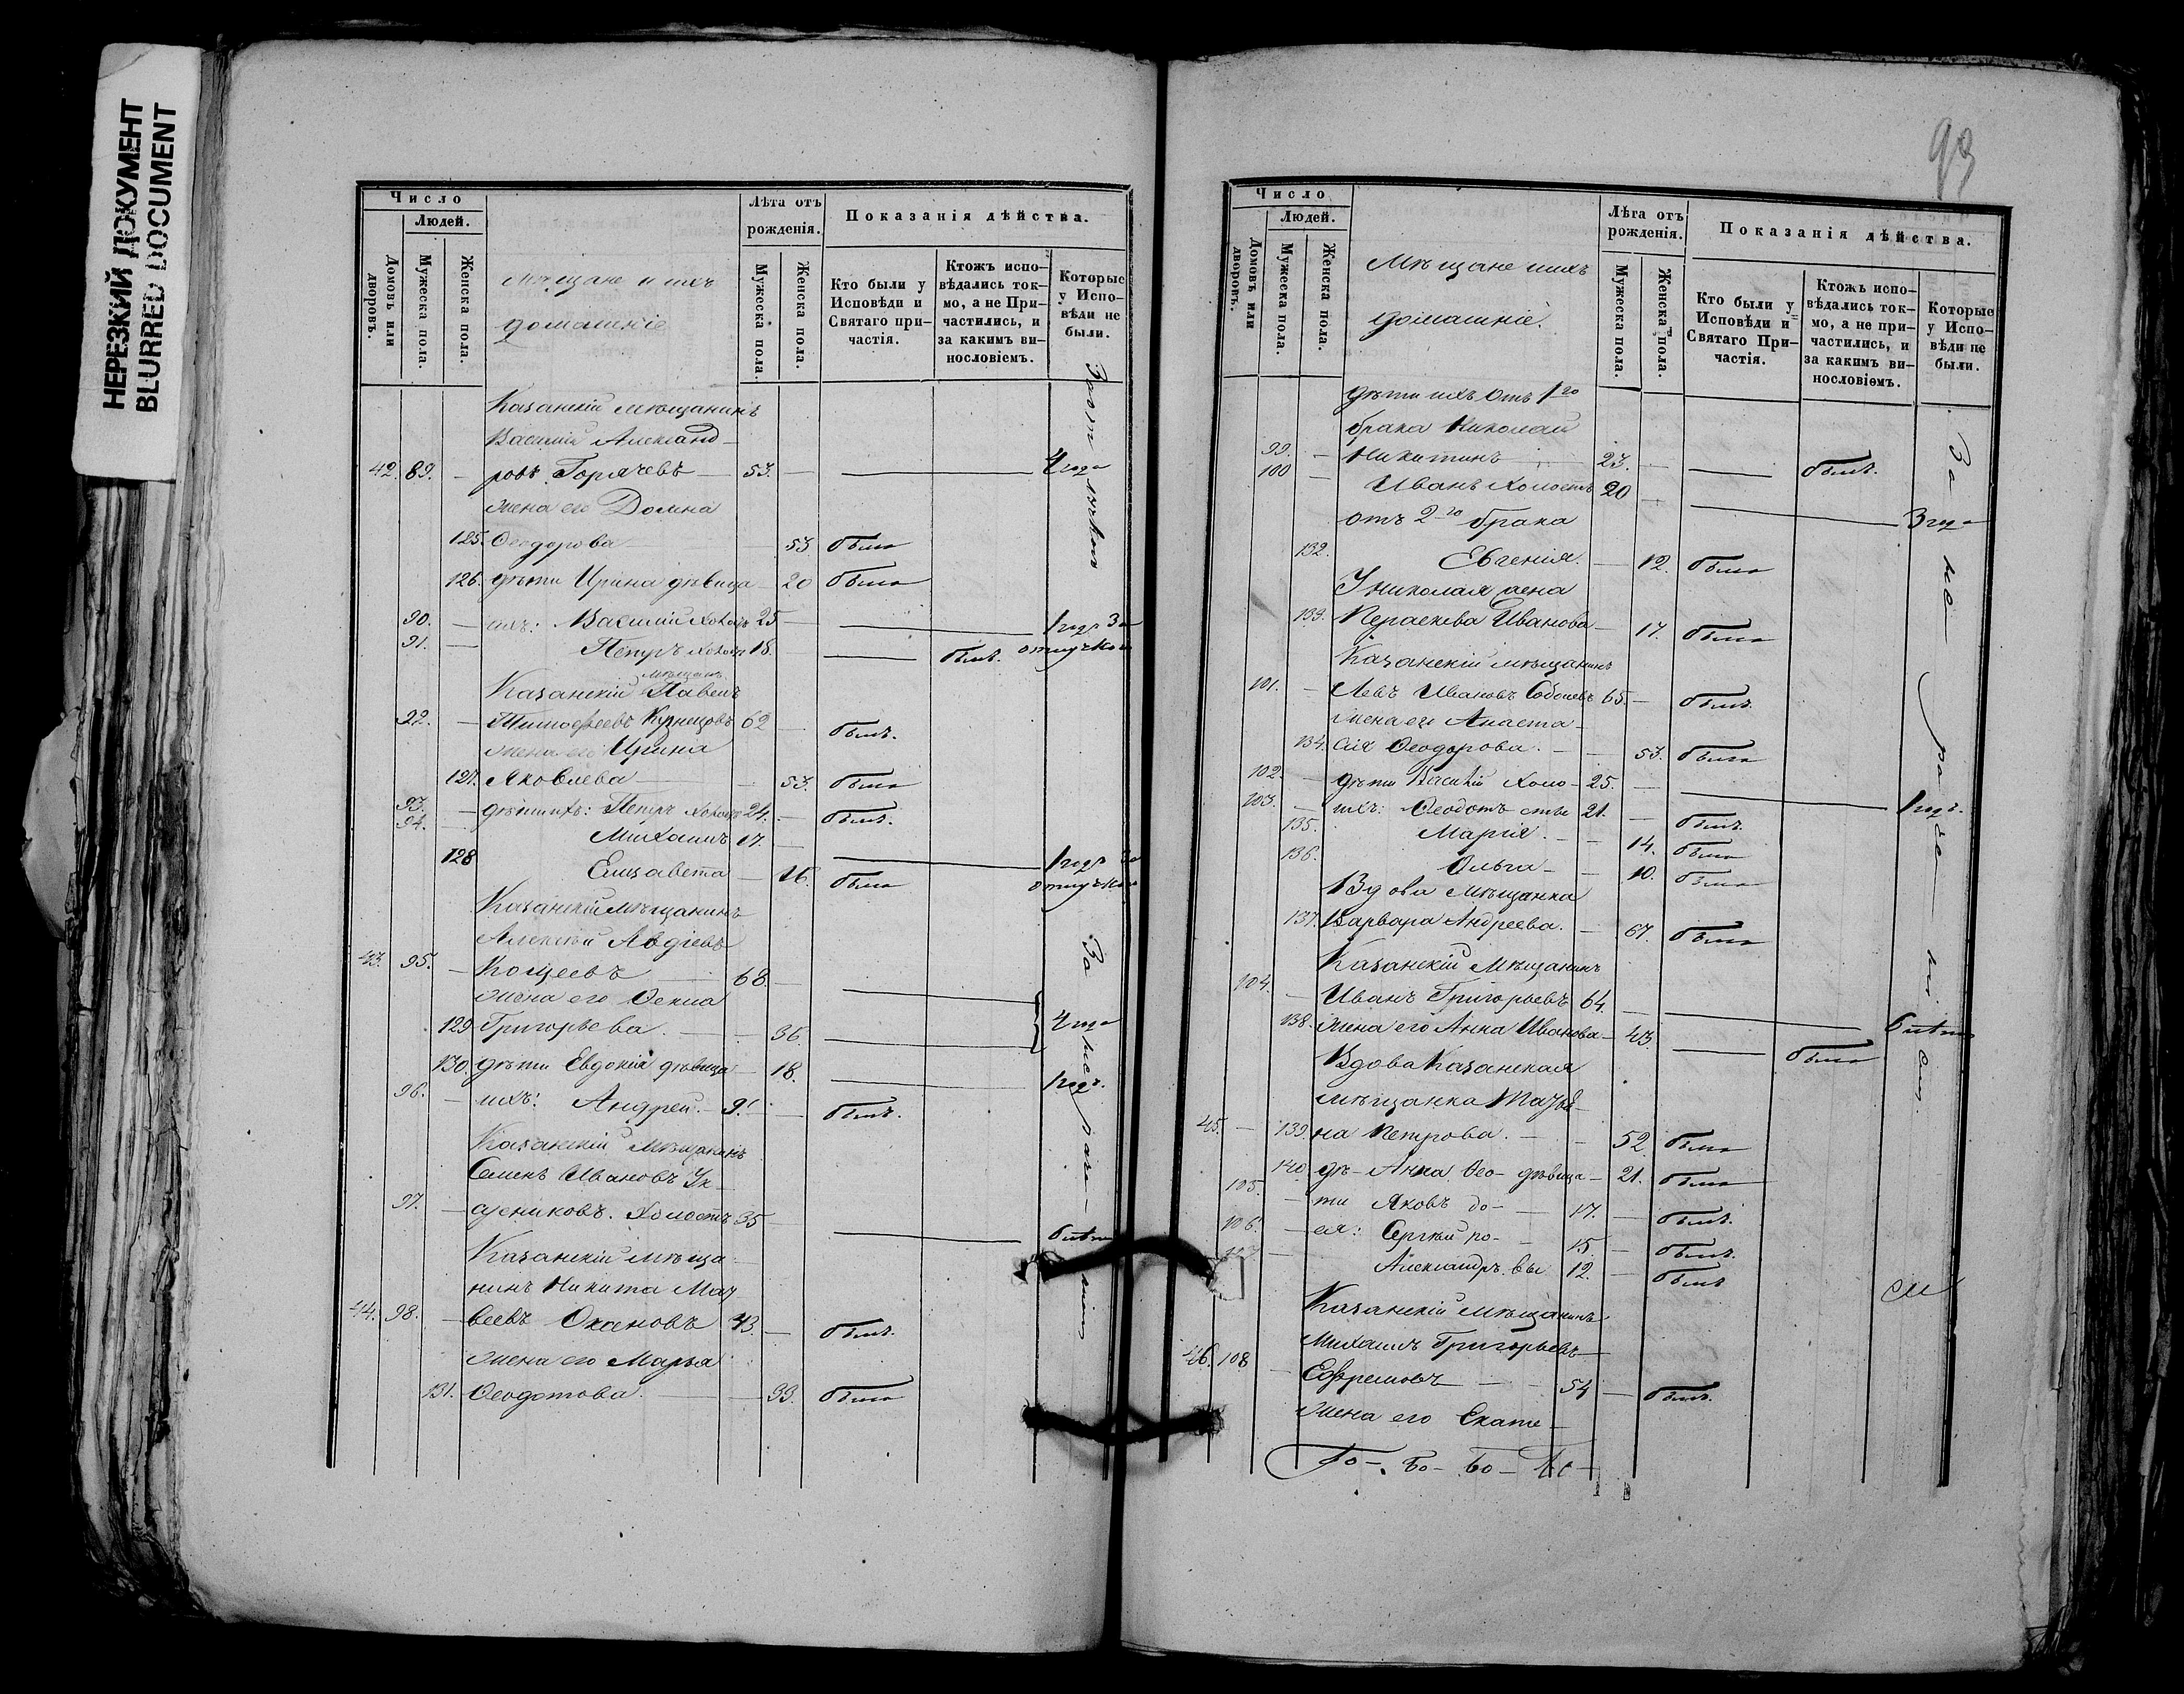 НЕРЕЗКИЙ ДОКУМЕНТ
BLURRED DOCUMENT
Число
Людей.
Домовъ или дворовъ.
Мужеска пола.
Женска пола.
Мѣщане и ихъ
домашніе
Лѣта отъ рожденія.
Мужеска пола.
Женска пола.
Показанія дѣйства.
Кто были у Исповѣди и Святаго при-частія.
Ктожъ испо-вѣдались ток-мо, а не При-частились, и за какимъ ви-нословіемъ.
Которые у Испо-вѣди не были.
Казанскій мѣщанинъ
Василій Александ-
42. 89. - ровъ Горячевъ 53. - 4 года
жена его Домна
125. Ѳеодорова 53. была
126. дѣти Ирина дѣвица - 20 была
90. - ихъ: Василій Холост 25 - 1 годъ За
91. - Петръ Холост 18. - былъ. отлучкою
мѣщан.
Казанскій Павелъ
92. - Тимофеевъ Кузнецовъ 62 - былъ.
жена его Ирина
127. Яковлева - 53. была
93. - дѣти ихъ: Петръ Холост 24. - былъ.
94. - Михаилъ 17. - 1 годъ За
128 Елизавета - 16. была отлучкою
Казанскій мѣщанинъ
Алексѣй Авдіевъ
43. 95. - Кощеевъ 68. -
жена его Ѳекла
129 Григорьева. - 36. 4 года
130. дѣти Евдокія дѣвица - 18. 1 годъ.
96. - ихъ: Андрей. 9. - былъ.
Казанскій мѣщанинъ
Семенъ Ивановъ
97. - Холостъ 35 - 6 лѣтъ
Казанскій мѣща-
нинъ Никита Мат
44. 98. - веевъ Океновъ 43. - былъ.
жена его Марья
131. Ѳеодотова. - 39. была
За не раче-ніем
93
Число
Людей.
Домовъ или дворовъ.
Мужеска пола.
Женска пола.
Мѣщане и ихъ
домашніе.
Лѣта отъ рожденія.
Мужеска пола.
Женска пола.
Показанія дѣйства.
Кто были у Исповѣди и Святаго При-частія.
Ктожъ испо-вѣдались ток-мо, а не при-частились, и за какимъ ви-нословіемъ.
Которые у Испо-вѣди не были.
дѣти ихъ отъ 1го
брака Николай
99. - Никитинъ 23. - былъ.
100 - Иванъ Холостъ 20 - 3 года
отъ 2го брака
132. Евгенія. - 12. была
У Николая жена
133. Параскева Иванова - 17. была
Казанскій мѣщанинъ
101. - Левъ Ивановъ Соболевъ 65. - былъ
жена его Анаста-
134. сія Ѳеодорова. - 53. была
102. - дѣти Василій Холо- 25. - 1 годъ.
103. - ихъ: Ѳеодотъ сты 21. - былъ.
135. Марія. - 14. была
136. Ольга - 10. была
Вдова мѣщанка
137. Варвара Андреева. - 67. была
Казанскій мѣщанинъ
104. - Иванъ Григорьевъ 64. - 6 лѣтъ
138. жена его Анна Иванова - 43. была
Вдова Казанская
мѣщанка Татья-
45. - 139. на Петрова. - 52. была
140. дѣ- Анна Ѳео- дѣвица - 21. была
105. - ти Яковъ до- 17. - былъ.
106. - ея: Сергѣй ро- 15. - былъ.
107 - Александръ вы 12. - былъ
Казанскій мѣщанинъ
Михаилъ Григорьевъ
46. 108 - Ефремовъ 54 - былъ.
жена его Екате-
За не раче-ніем